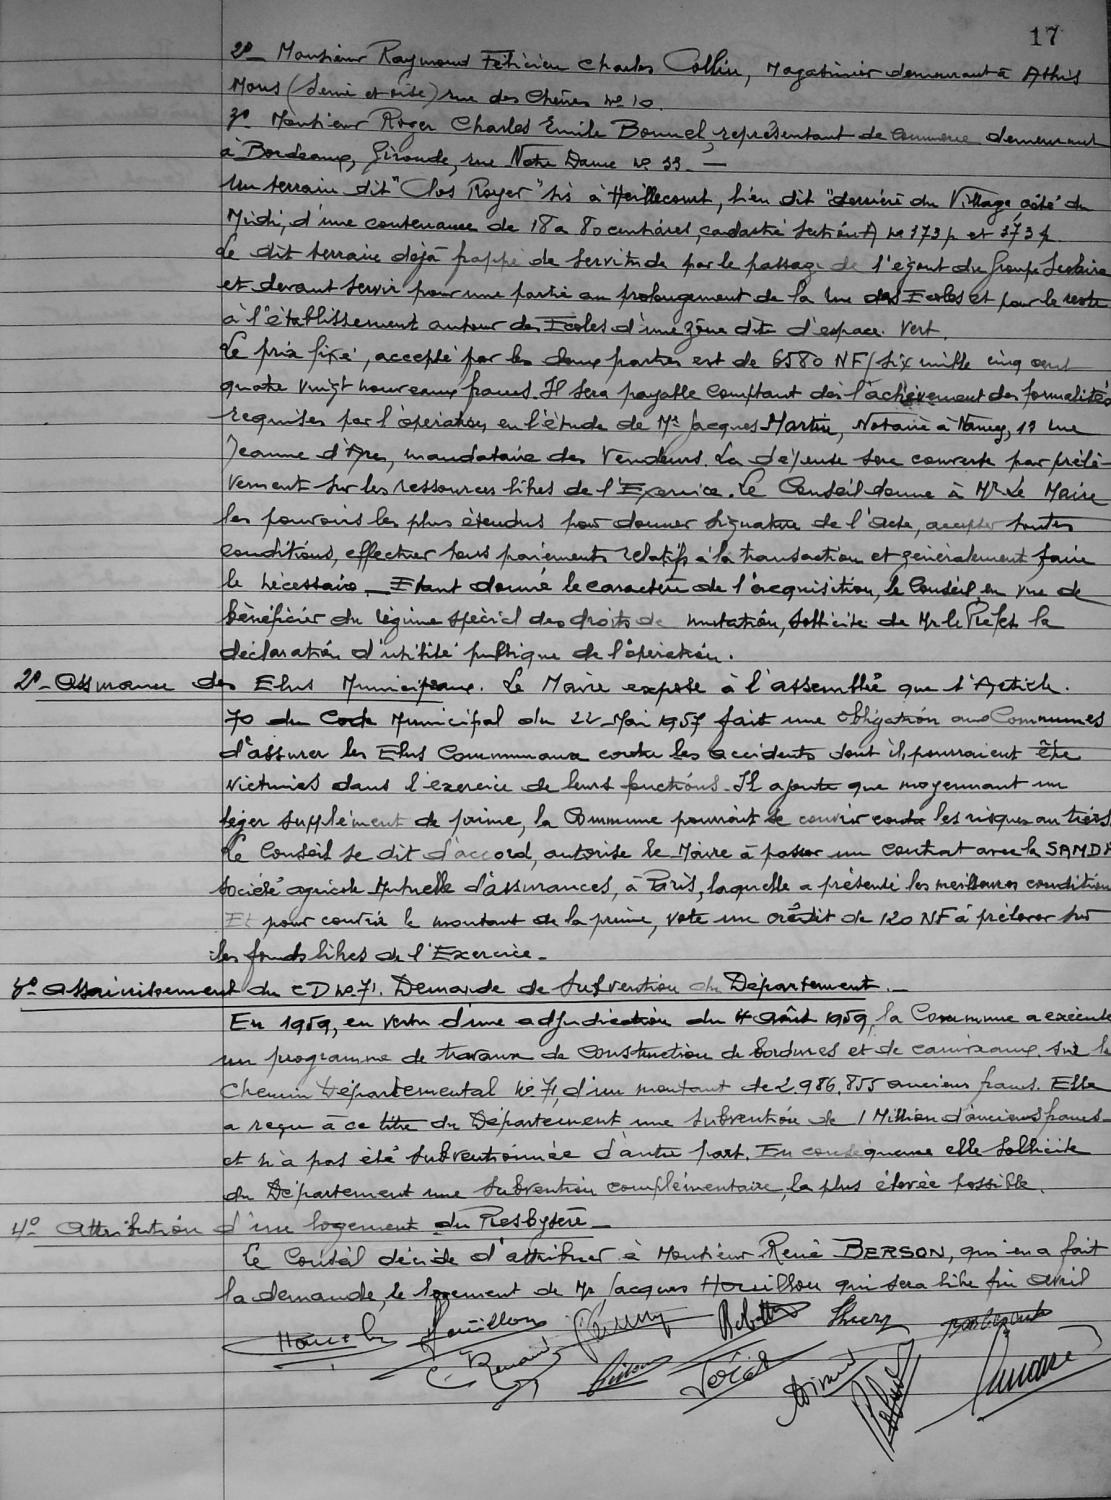 17
2º_ Monsieur Raymond Félicien Charles Collin, Magasinier demeurant à Athis
Mons (Seine et Oise) rue des Chênes nº 10.
3º Monsieur Roger Charles Emile Bonnel, représentant de Commerce demeurant
à Bordeaux, Gironde, rue Notre Dame nº 33. —
Un terrain dit "Clos Royer" sis à Heillecourt, lieu dit "derrière du Village, côté du
Midi, d'une contenance de 18a 80 centiares, cadastré section A nº 373p et 373p.
Le dit terrain déjà frappé de servitude par le passage de l'égout du Groupe Scolaire
et devant servir pour une partie au prolongement de la rue des Ecoles et pour le reste
à l'établissement autour des Ecoles d'une zône dite d'espace vert.
Le prix fixé, accepté par les deux parties est de 6580 NF (six mille cinq cent
quatre vingt nouveaux francs. Il sera payable comptant dès l'achèvement des formalités
requises par l'opération, en l'étude de Me Jacques Martin, Notaire à Nancy, rue
Jeanne d'Arc, mandataire des Vendeurs. La dépense sera couverte par prélè-
vement sur les ressources libres de l'Exercice. Le Conseil donne à Mr Le Maire
les pouvoirs les plus étendus pour donner signature de l'acte, accepter toutes
conditions, effectuer tous paiements relatifs à la transaction et généralement faire
le nécessaire _ Etant donné le caractère de l'acquisition, le Conseil, en vue de
bénéficier du régime spécial des droits de mutation, sollicite de Mr le Préfet la
déclaration d'utilité publique de l'opération.
2º_ Assurance des Elus Municipaux. Le Maire expose à l'assemblée que l'Article.
70 du Code Municipal du 22 Mai 1957 fait une obligation aux Communes
d'assurer les Elus Communaux contre les accidents dont ils pourraient être
victimes dans l'exercice de leurs fonctions. Il ajoute que moyennant un
léger supplément de prime, la Commune pourrait se couvrir contre les risques au tiers
Le Conseil se dit d'accord, autorise le Maire à passer un contrat avec la SAMDA
Société agricole Mutuelle d'assurances, à Paris, laquelle a présenté les meilleures conditions
Et pour couvrir le montant de la prime, vote un crédit de 120 NF à prélever sur
les fonds libres de l'Exercice _
3º_ Assainissement du CD nº 71. Demande de Subvention du Département. _
En 1959, en vertu d'une adjudication du 4 Août 1959, la Commune a exécuté
un programme de travaux de construction de bordures et de caniveaux sur le
Chemin Départemental nº 71, d'un montant de 2.986.855 anciens francs. Elle
a reçu à ce titre du Département une subvention de 1 Million d'anciens francs
et n'a pas été subventionnée d'autre part. En conséquence elle sollicite
du Département une subvention complémentaire, la plus élevée possible.
4º_ Attribution d'un logement du Presbytère _
Le Conseil décide d'attribuer à Monsieur René BERSON, qui en a fait
la demande, le logement de Mr Jacques Houillon qui sera libre fin Avril
Houillon
Thiery